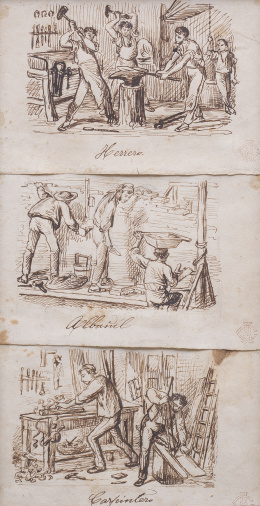 Herrero
Albañil
Carpintero